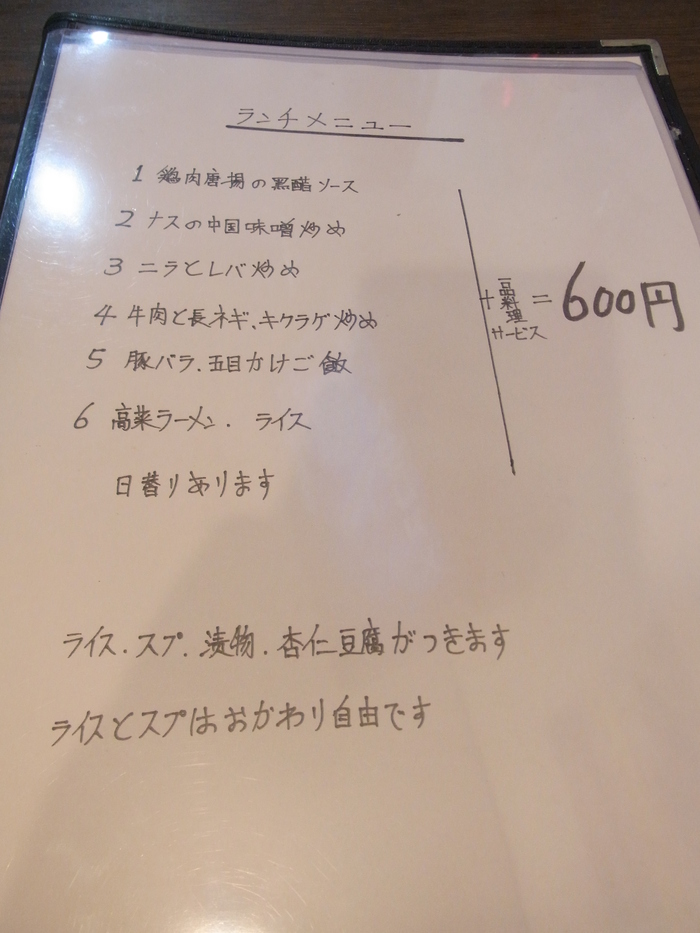 ランチメニュー
1 鶏肉唐揚の黒醋ソース
2 ナスの中国味噌炒め
3 ニラとレバ炒め
4 牛肉と長ネギ、キクラゲ炒め
5 豚バラ.五目かけご飯
6 高菜ラーメン. ライス
日替りあります
+一品料理サービス = 600円
ライス.スプ.漬物.杏仁豆腐がつきます
ライスとスプはおかわり自由です